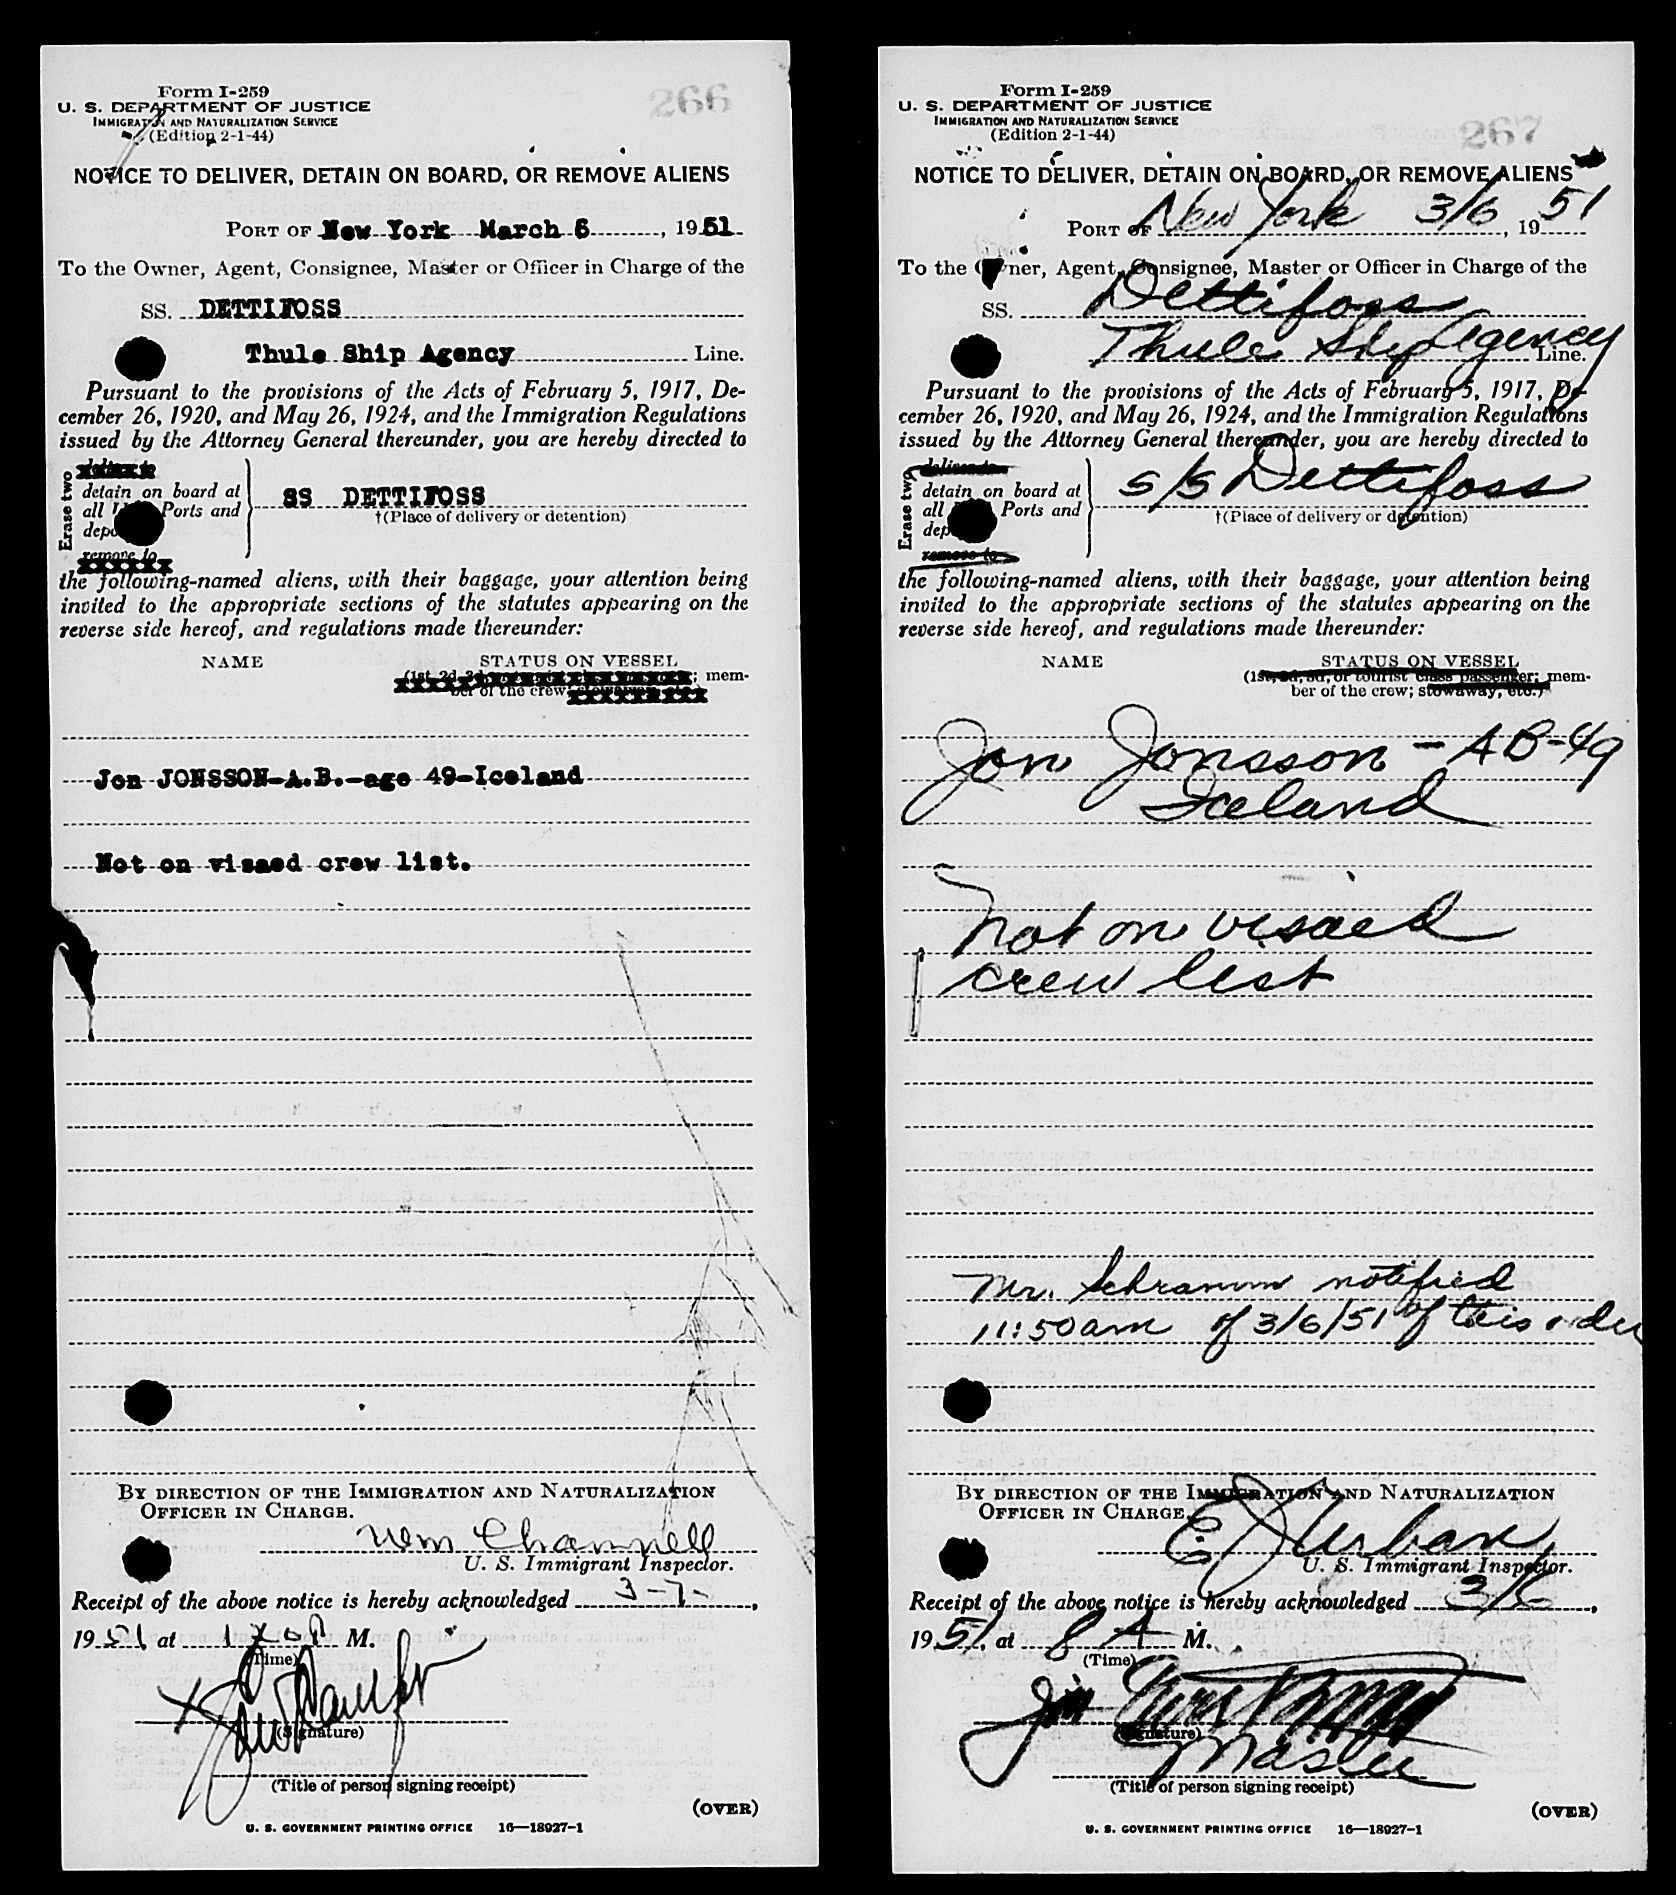 Form I-259
U. S. DEPARTMENT OF JUSTICE
IMMIGRATION AND NATURALIZATION SERVICE
(Edition 2-1-44)
266
NOTICE TO DELIVER, DETAIN ON BOARD, OR REMOVE ALIENS
PORT OF New York March 6, 1951
To the Owner, Agent, Consignee, Master or Officer in Charge of the
SS. DETTIFOSS
Thule Ship Agency Line.
Pursuant to the provisions of the Acts of February 5, 1917, De-
cember 26, 1920, and May 26, 1924, and the Immigration Regulations
issued by the Attorney General thereunder, you are hereby directed to
Erase two
deliver to
detain on board at
all Ports and
remove to
SS DETTIFOSS
†(Place of delivery or detention)
the following-named aliens, with their baggage, your attention being
invited to the appropriate sections of the statutes appearing on the
reverse side hereof, and regulations made thereunder:
NAME STATUS ON VESSEL
(1st, 2d, 3d, ; mem-
ber of the crew;
Jon JONSSON-A.B.-age 49-Iceland
Not on visaed crew list.
BY DIRECTION OF THE IMMIGRATION AND NATURALIZATION
OFFICER IN CHARGE.
Wm Channell
U. S. Immigrant Inspector.
Receipt of the above notice is hereby acknowledged 3-7-,
1951 at P M.
(Time)
X
(Signature)
(Title of person signing receipt)
(OVER)
U. S. GOVERNMENT PRINTING OFFICE 16—18927-1
Form I-259
U. S. DEPARTMENT OF JUSTICE
IMMIGRATION AND NATURALIZATION SERVICE
(Edition 2-1-44)
267
NOTICE TO DELIVER, DETAIN ON BOARD, OR REMOVE ALIENS
PORT OF New York 3/6, 1951
To the Owner, Agent, Consignee, Master or Officer in Charge of the
SS. Dettifoss
Thule Ship Agency Line.
Pursuant to the provisions of the Acts of February 5, 1917, De-
cember 26, 1920, and May 26, 1924, and the Immigration Regulations
issued by the Attorney General thereunder, you are hereby directed to
Erase two
deliver to
detain on board at
all Ports and
remove to
S/S Dettifoss
†(Place of delivery or detention)
the following-named aliens, with their baggage, your attention being
invited to the appropriate sections of the statutes appearing on the
reverse side hereof, and regulations made thereunder:
NAME STATUS ON VESSEL
(1st, 2d, 3d, or tourist class passenger; mem-
ber of the crew; stowaway, etc.)
Jon Jonsson - AB-49
Iceland
Not on visaed
crew list
Mr. Schramm notified
11:50am of 3/6/51 of this order
BY DIRECTION OF THE IMMIGRATION AND NATURALIZATION
OFFICER IN CHARGE.
E J Urban
U. S. Immigrant Inspector.
Receipt of the above notice is hereby acknowledged 3/6,
1951, at 8 A M.
(Time)
(Signature)
Master
(Title of person signing receipt)
(OVER)
U. S. GOVERNMENT PRINTING OFFICE 16—18927-1